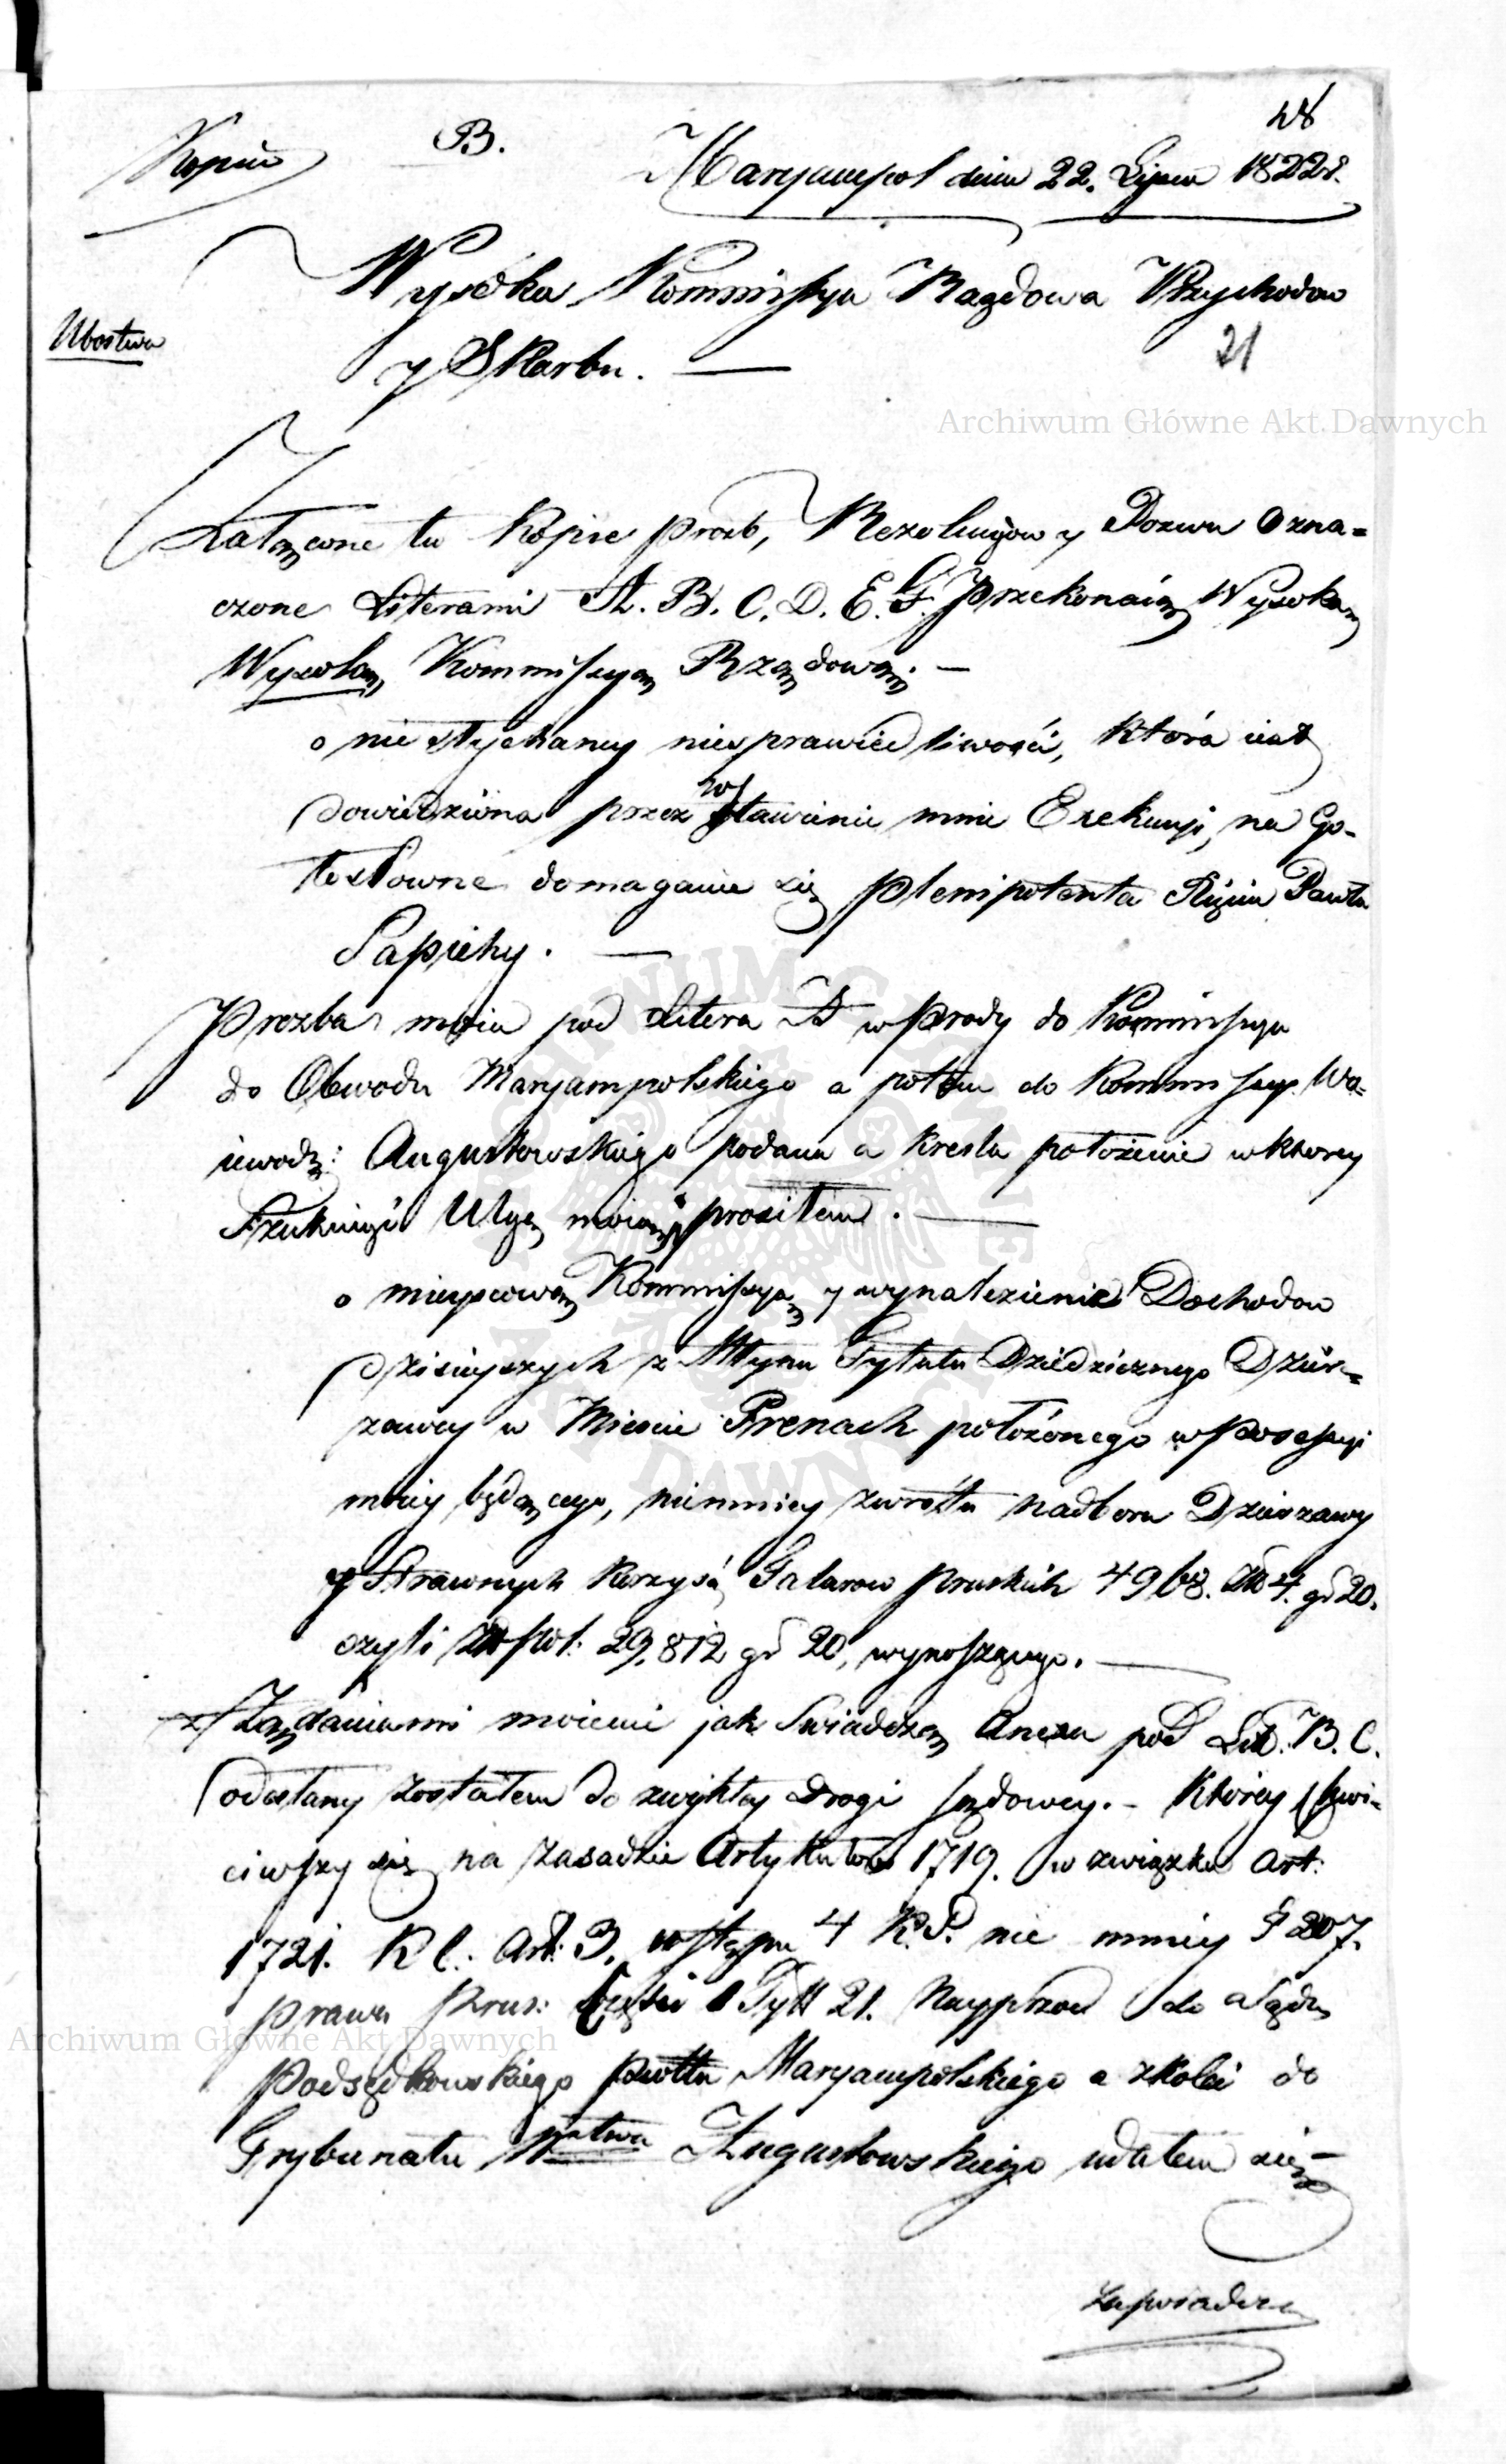 48
Kopia B. Maryampol dnia 22. Lipca 1822 r.
Wysoka Kommissya Rządowa Przychodow
Ubostwa
21
y Skarbu. —
Archiwum Główne Akt Dawnych
Załączone tu kopie prozb, Rezolucyow y Pozwu Ozna=
czone Literami A. B. C. D. E. F. przekonaią Wysoką
Wysoką Kommissyą Rządową. —
o niesłychaney niesprawiedliwości, która iest
dowiedziona przez wstawienie mnie Exekucyi, na Go-
łosłowne domaganie się plenipotenta Xięcia Pawła
Sapiehy. —
Prozba moia pod Litera A wprzody do Kommissyi
do Obwodu Maryampolskiego a potem do Kommissyi Wo=
iewodz: Augustowskiego podana a kresla położenie w ktorey
Szukaiąc Ulgę moią prosiłem. —
o mieyscową Kommissyą y wynalezienie Dochodow
dzisieyszych z Młynu Tytułu Dziedzicznego Dzier=
zawcy w Miescie Prenach położonego w possessyi
moiey będącego, niemniey zwrotu nadboru Dzierzawy
y Strawnych korzyści Talarow pruskich 4968. Zł 4. gr 20.
czyli Zł pol: 29,812 gr 20, wynoszącego. —
z Żądaniami moiemi jak Swiadczą Anexa pod Lit: B. C.
odesłany zostałem do zwykłey drogi sądowey. - Ktorey chwy-
ciwszy się na zasadzie Artykułow 1719. w związku Art:
1721. K C. Art: 3. wstępu 4 K. P. nie mniey § 207.
prawa Prus: Części 1 Tytt 21. Nayprzod do Sądu
Archiwum Główne Akt Dawnych
Podsędkowskiego Pwttu Maryampolskiego a z kolei do
Trybunału Wdztwa Augustowskiego udałem się —